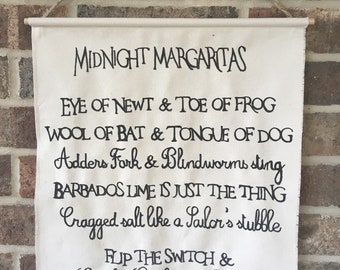 MIDNIGHT MARGARITAS
EYE OF NEWT & TOE OF FROG
WOOL OF BAT & TONGUE OF DOG
Adders Fork & Blindworms sting
BARBADOS LIME IS JUST THE THING
Cragged salt like a Sailor's stubble
FLIP THE SWITCH &